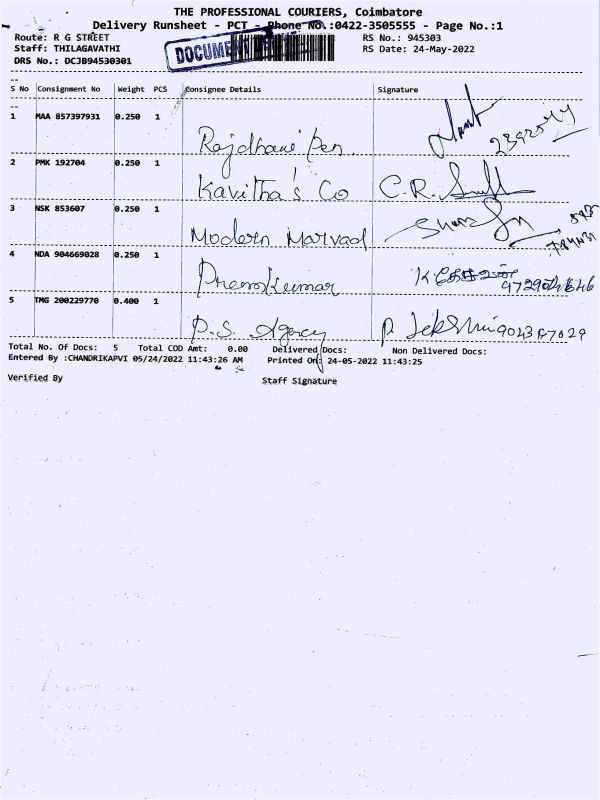 THE PROFESSIONAL COURIERS, Coimbatore
Delivery Runsheet - PCT - Phone No.:0422-3505555 - Page No.:1
Route: R G STREET RS No.: 945303
Staff: THILAGAVATHI RS Date: 24-May-2022
DRS No.: DCJB94530301
DOCUMENT
S No Consignment No Weight PCS Consignee Details Signature
1 MAA 857397931 0.250 1
Rajdhani Pen
2 PMK 192704 0.250 1
Kavitha's Co C.R.
3 NSK 853607 0.250 1
Modern Marvad
4 NDA 904669028 0.250 1
Premkumar
5 TMG 200229770 0.400 1
P.S. Agency P.
Total No. Of Docs: 5 Total COD Amt: 0.00 Delivered Docs: Non Delivered Docs:
Entered By :CHANDRIKAPVI 05/24/2022 11:43:26 AM Printed On: 24-05-2022 11:43:25
Verified By Staff Signature